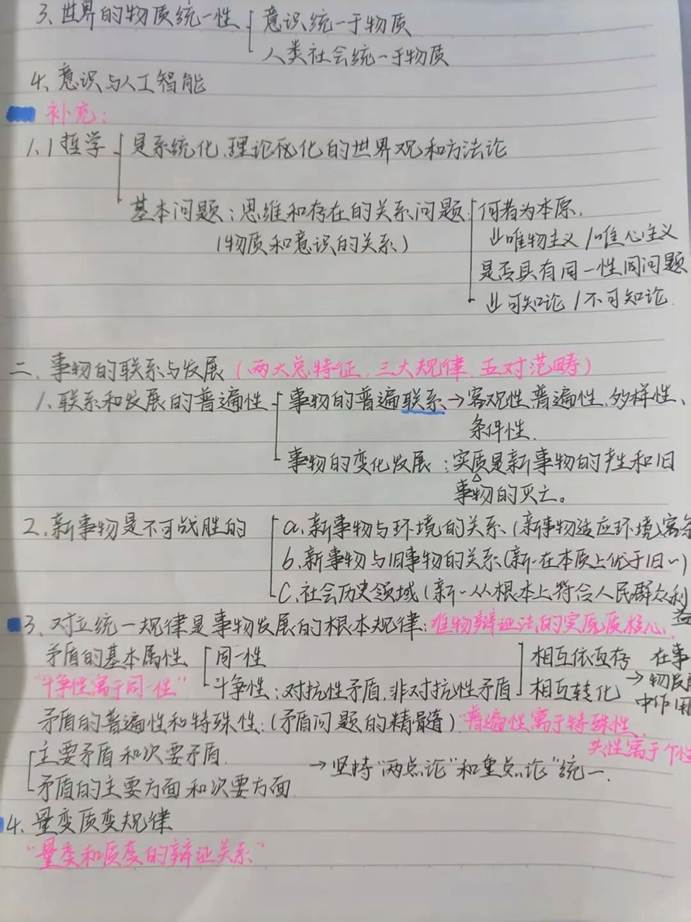 3. 世界的物质统一性 意识统一于物质
人类社会统一于物质
4. 意识与人工智能
补充:
1.1 哲学 是系统化、理论化的世界观和方法论
基本问题：思维和存在的关系问题 何者为本原.
(物质和意识的关系) 唯物主义/唯心主义
是否具有同一性问题
可知论/不可知论
二、事物的联系与发展 (两大总特征、三大规律 五对范畴)
1. 联系和发展的普遍性 事物的普遍联系→客观性、普遍性、多样性、
条件性.
事物的变化发展：实质是新事物的产生和旧
事物的灭亡。
2. 新事物是不可战胜的 a. 新事物与环境的关系 (新事物适应环境
b. 新事物与旧事物的关系 (新~在本质上优于旧~)
C. 社会历史领域 (新~从根本上符合人民群众利
益
3. 对立统一规律是事物发展的根本规律: 唯物辩证法的实质核心.
矛盾的基本属性 同一性 相互依存 在事
"斗争性寓于同一性" 斗争性：对抗性矛盾.非对抗性矛盾 相互转化 → 物
中作用
矛盾的普遍性和特殊性: (矛盾问题的精髓) 普遍性寓于特殊性
共性寓于个性
主要矛盾和次要矛盾.
矛盾的主要方面和次要方面 → 坚持"两点论"和重点论"统一.
4. 量变质变规律
"量变和质变的辩证关系"